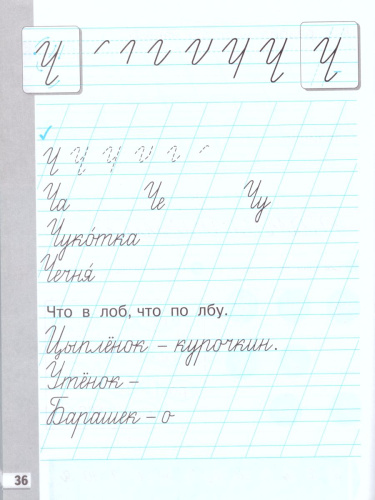 Ч Ч
Ч Ч
Ча Че Чу
Чуко́тка
Чечня́
Что в лоб, что по лбу.
Цыплёнок – курочкин.
Утёнок –
Барашек – о
36